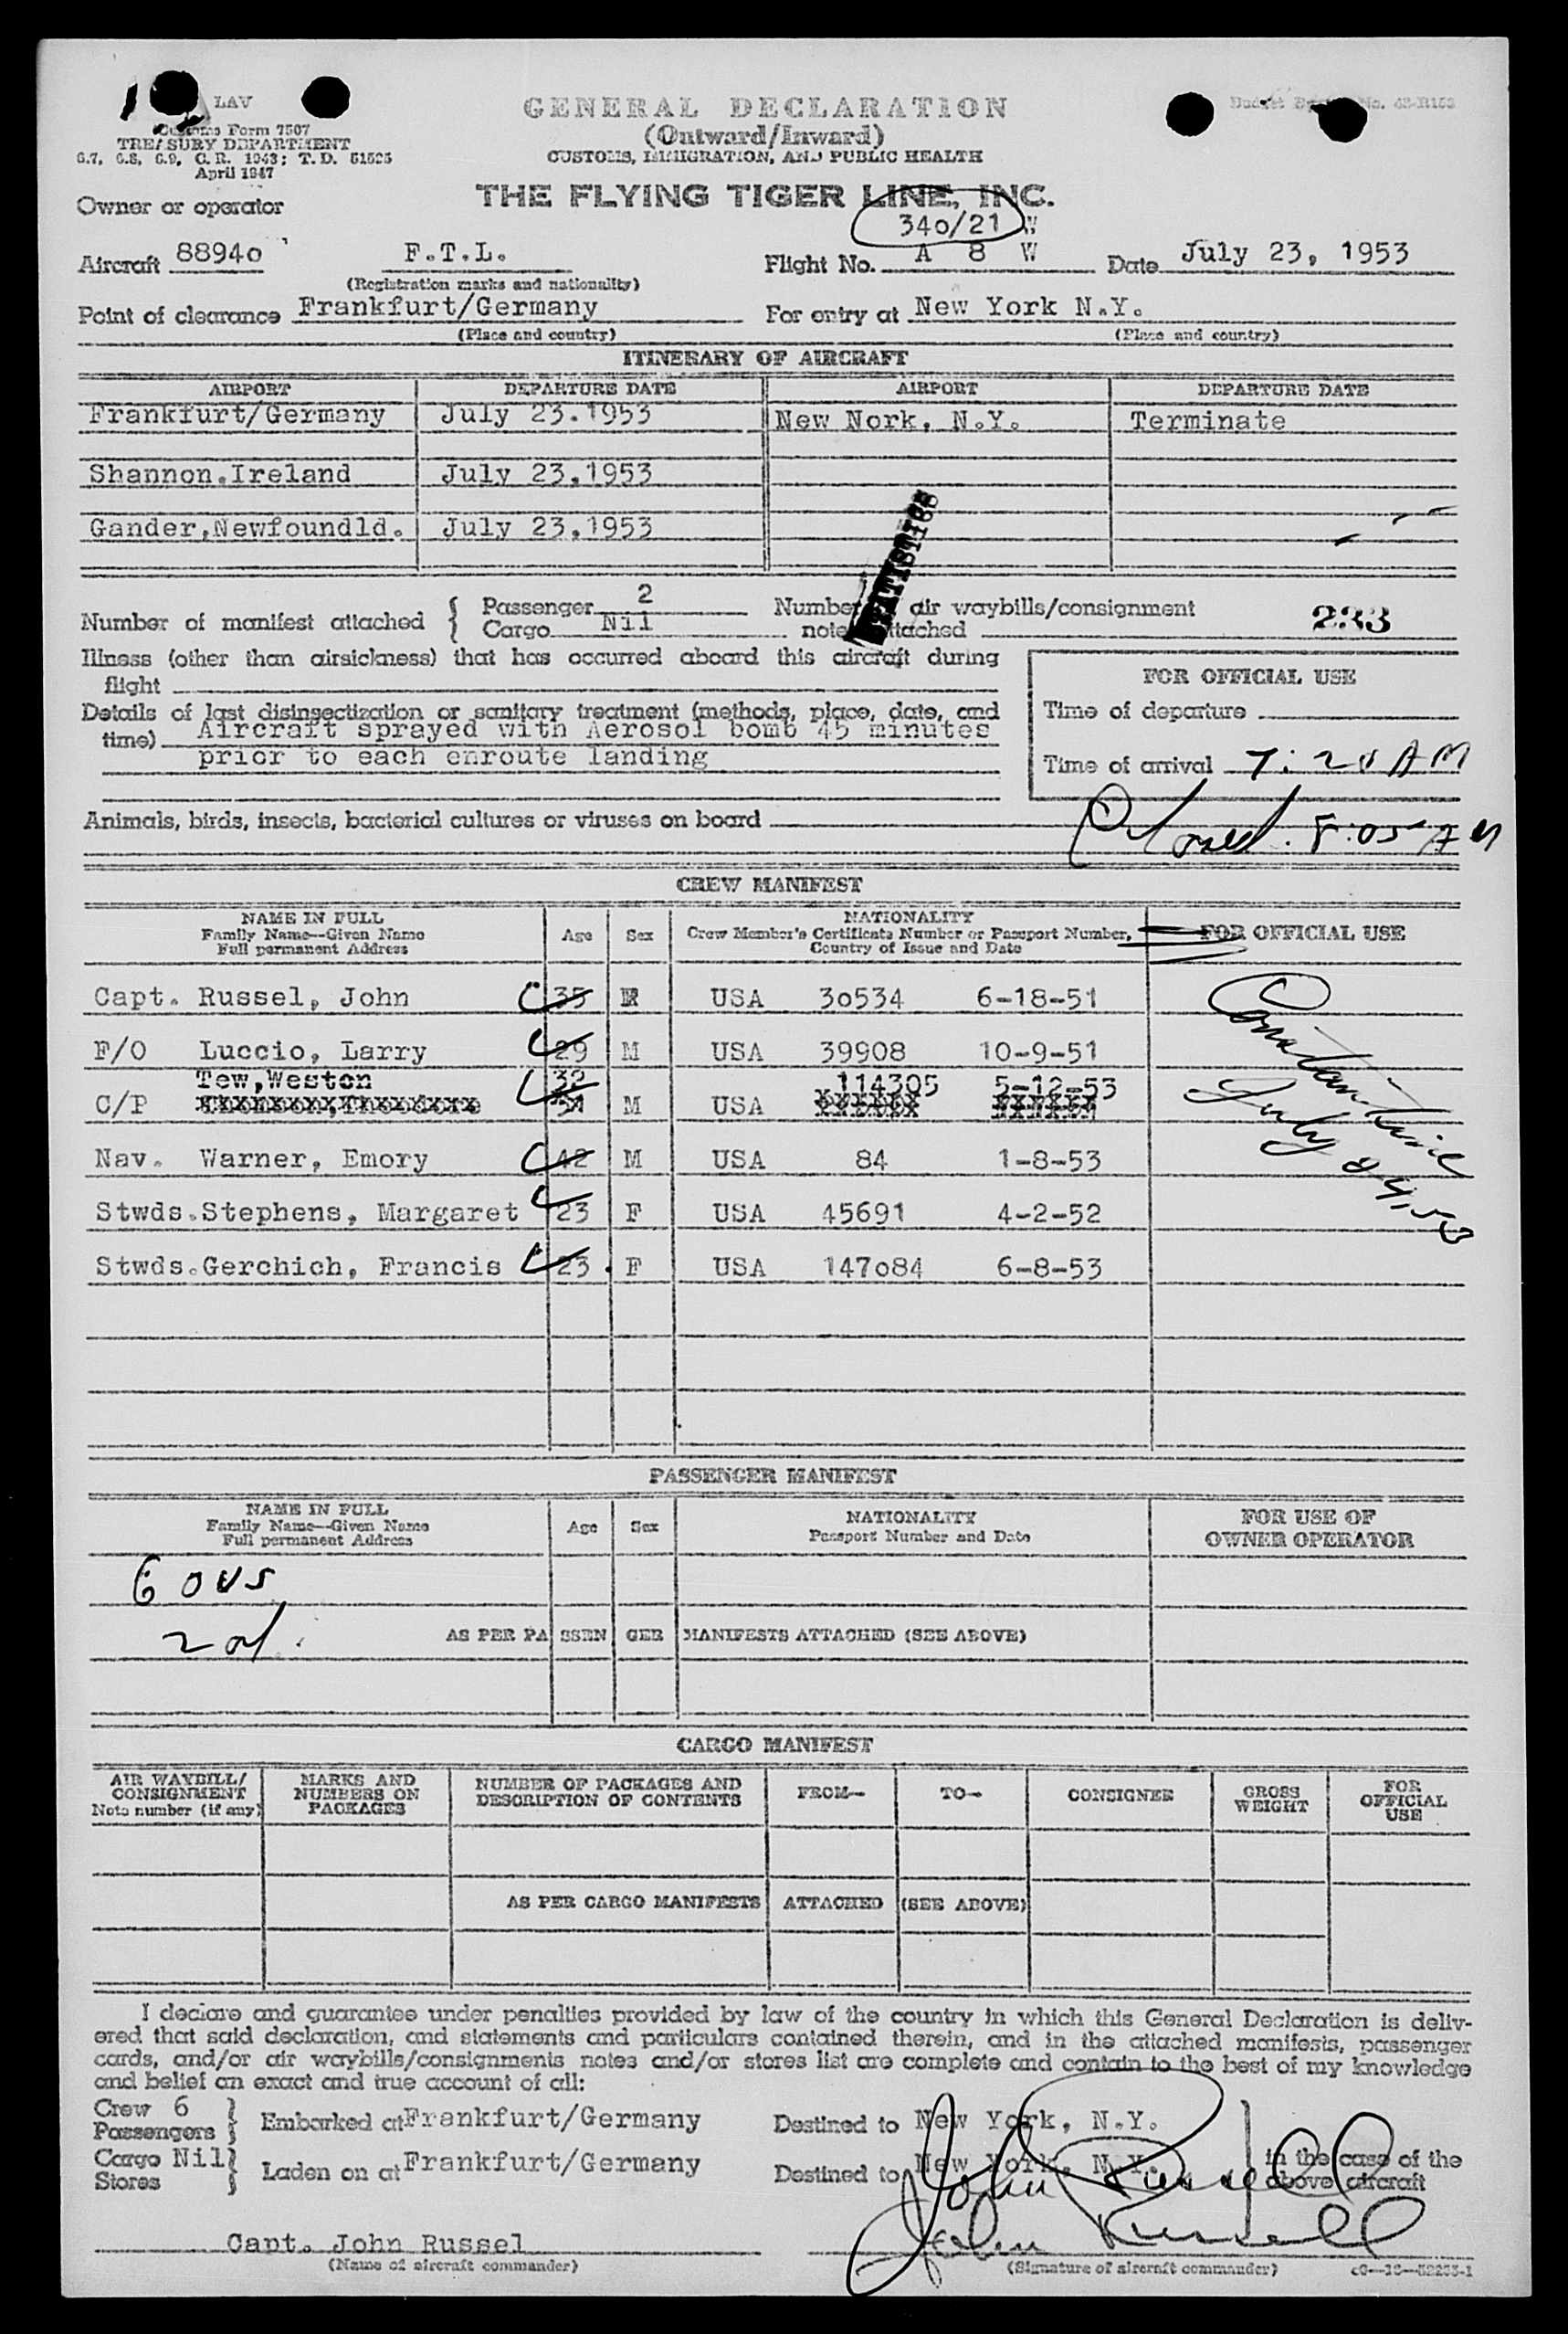 LAV
Customs Form 7507
TREASURY DEPARTMENT
6.7, 6.8, 6.9, C.R. 1943; T.D. 51525
April 1947
GENERAL DECLARATION
(Outward/Inward)
CUSTOMS, IMMIGRATION, AND PUBLIC HEALTH
Owner or operator THE FLYING TIGER LINE, INC.
340/21 W
Aircraft 88940 F.T.L. Flight No. A 8 W Date July 23, 1953
(Registration marks and nationality)
Point of clearance Frankfurt/Germany For entry at New York N.Y.
(Place and country) (Place and country)
ITINERARY OF AIRCRAFT
AIRPORT DEPARTURE DATE AIRPORT DEPARTURE DATE
Frankfurt/Germany July 23.1953 New Nork, N.Y. Terminate
Shannon.Ireland July 23.1953
Gander,Newfoundld. July 23.1953
Number of manifest attached { Passenger 2 Number air waybills/consignment 233
Cargo Nil note attached
STATISTICS
Illness (other than airsickness) that has occurred aboard this aircraft during
flight
FOR OFFICIAL USE
Details of last disinsectization or sanitary treatment (methods, place, date, and
time) Aircraft sprayed with Aerosol bomb 45 minutes
prior to each enroute landing
Time of departure
Time of arrival 7:20 AM
Animals, birds, insects, bacterial cultures or viruses on board
8:05 AM
CREW MANIFEST
NAME IN FULL Age Sex NATIONALITY FOR OFFICIAL USE
Family Name—Given Name Crew Member's Certificate Number or Passport Number,
Full permanent Address Country of Issue and Date
Capt. Russel, John 35 USA 30534 6-18-51
F/O Luccio, Larry 29 M USA 39908 10-9-51
Tew,Weston 32 114305 5-12-53
C/P M USA
Nav. Warner, Emory 42 M USA 84 1-8-53
Stwds.Stephens, Margaret 23 F USA 45691 4-2-52
Stwds.Gerchich, Francis 23 F USA 147084 6-8-53
July 24, 53
PASSENGER MANIFEST
NAME IN FULL Age Sex NATIONALITY FOR USE OF
Family Name—Given Name Passport Number and Date OWNER OPERATOR
Full permanent Address
6 OUS
AS PER PASSENGER MANIFESTS ATTACHED (SEE ABOVE)
CARGO MANIFEST
AIR WAYBILL/ MARKS AND NUMBER OF PACKAGES AND FROM— TO— CONSIGNEE GROSS FOR
CONSIGNMENT NUMBERS ON DESCRIPTION OF CONTENTS WEIGHT OFFICIAL
Note number (if any) PACKAGES USE
AS PER CARGO MANIFESTS ATTACHED (SEE ABOVE)
I declare and guarantee under penalties provided by law of the country in which this General Declaration is deliv-
ered that said declaration, and statements and particulars contained therein, and in the attached manifests, passenger
cards, and/or air waybills/consignments notes and/or stores list are complete and contain to the best of my knowledge
and belief an exact and true account of all:
Crew 6
Passengers } Embarked at Frankfurt/Germany Destined to New York, N.Y.
Cargo Nil
Stores } Laden on at Frankfurt/Germany Destined to New York, N.Y. in the case of the
above aircraft
John Russell
Capt. John Russel John Russell
(Name of aircraft commander) (Signature of aircraft commander)